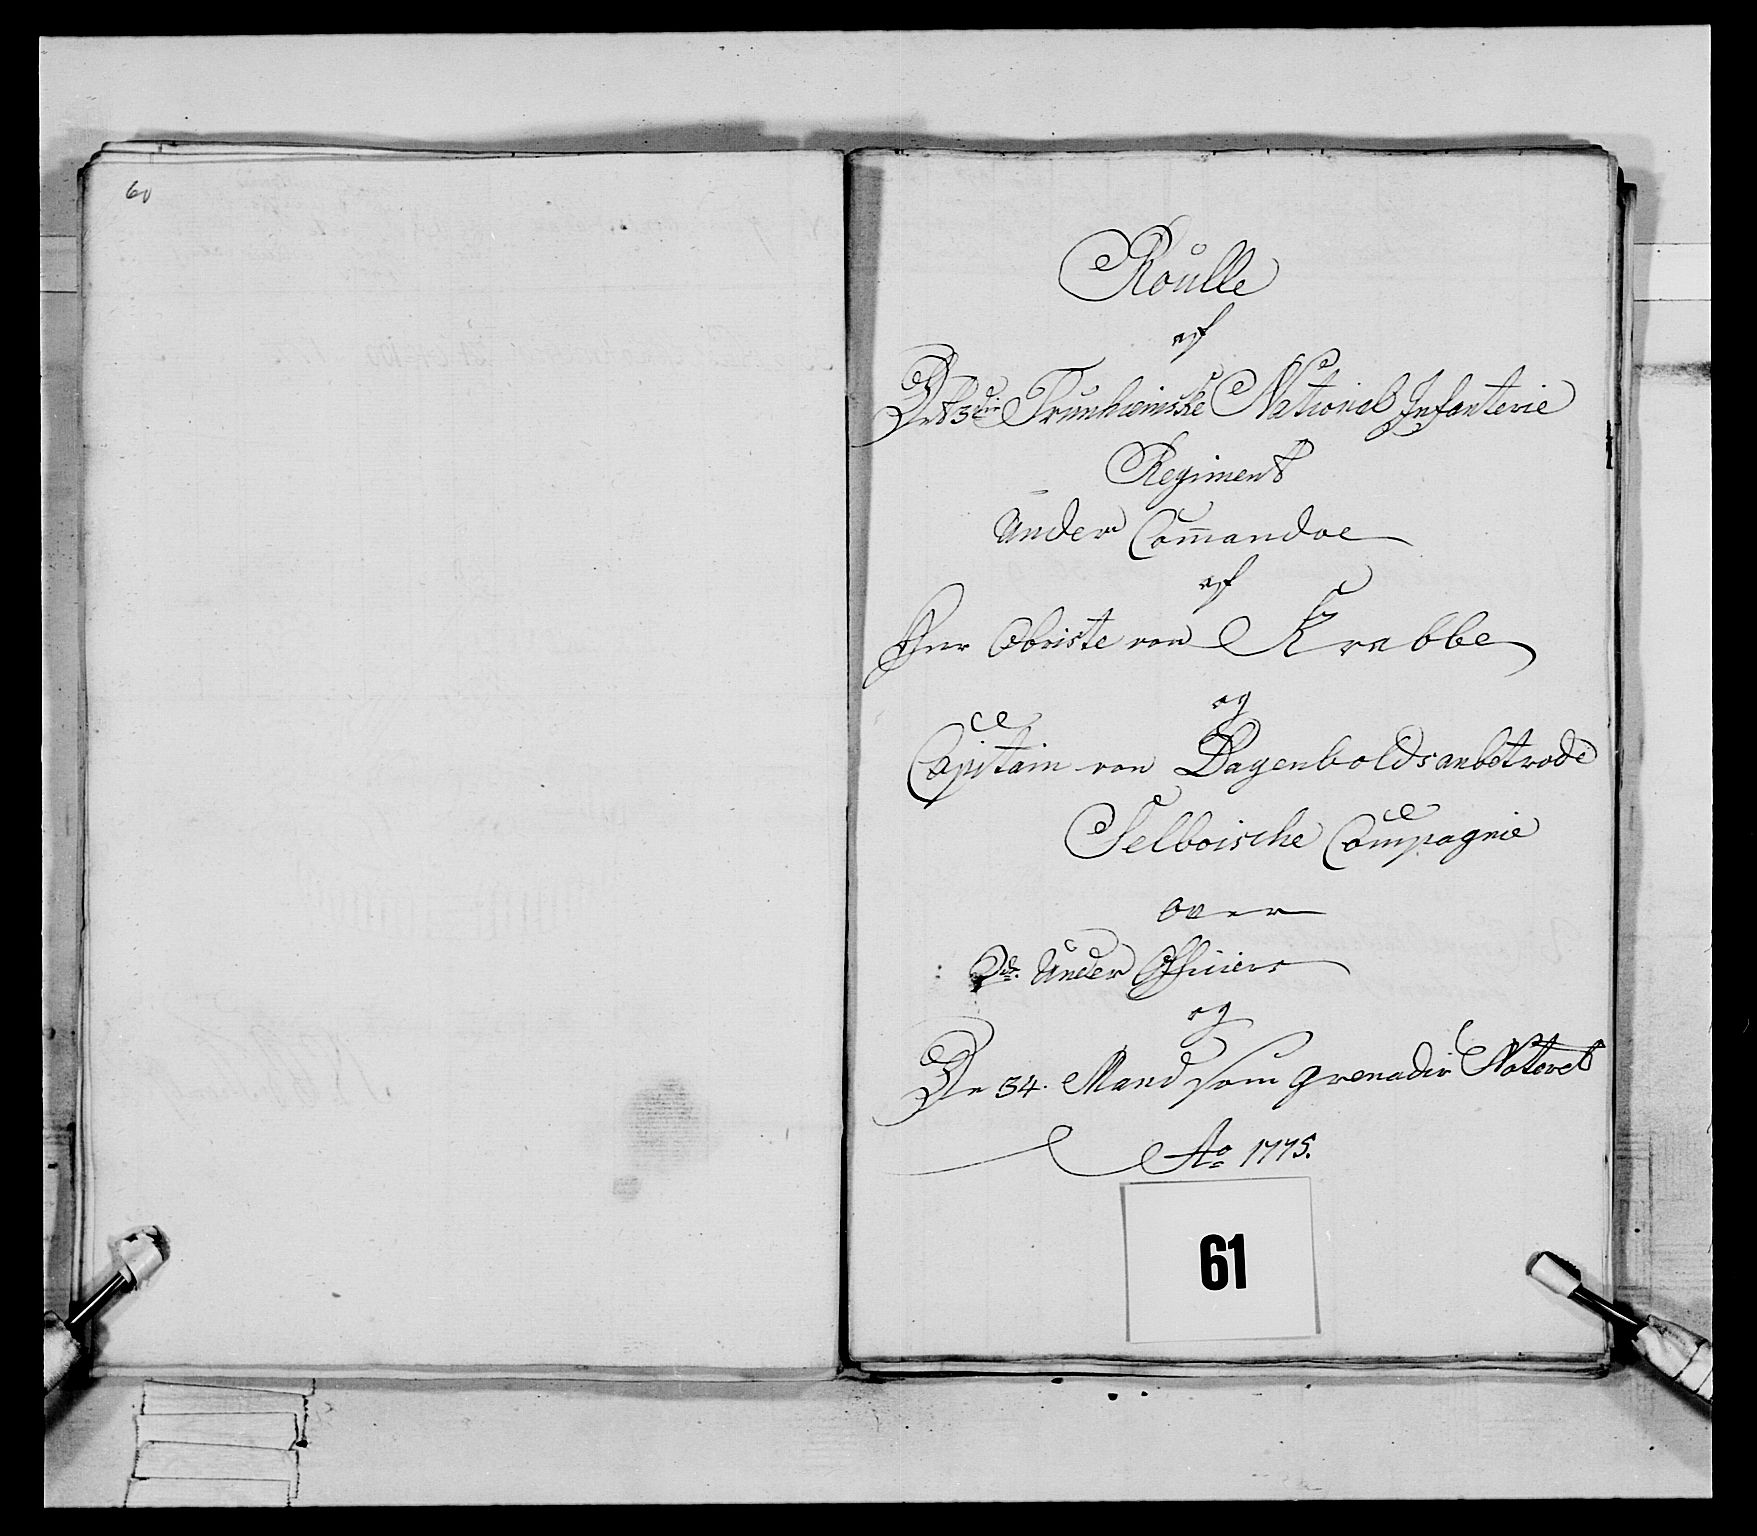 60
Roulle
af
Det 3die Trunhiemske National Infanterie
Regiment
Under Com̄andoe
af
Herr Obriste von Krabbe
og
Capitain von Dagenbolds anbetrode
Selboische Compagnie
over
Do. Under Officiers
og
De 34. Mand som grenadir Noteret
Ao 1775.
61